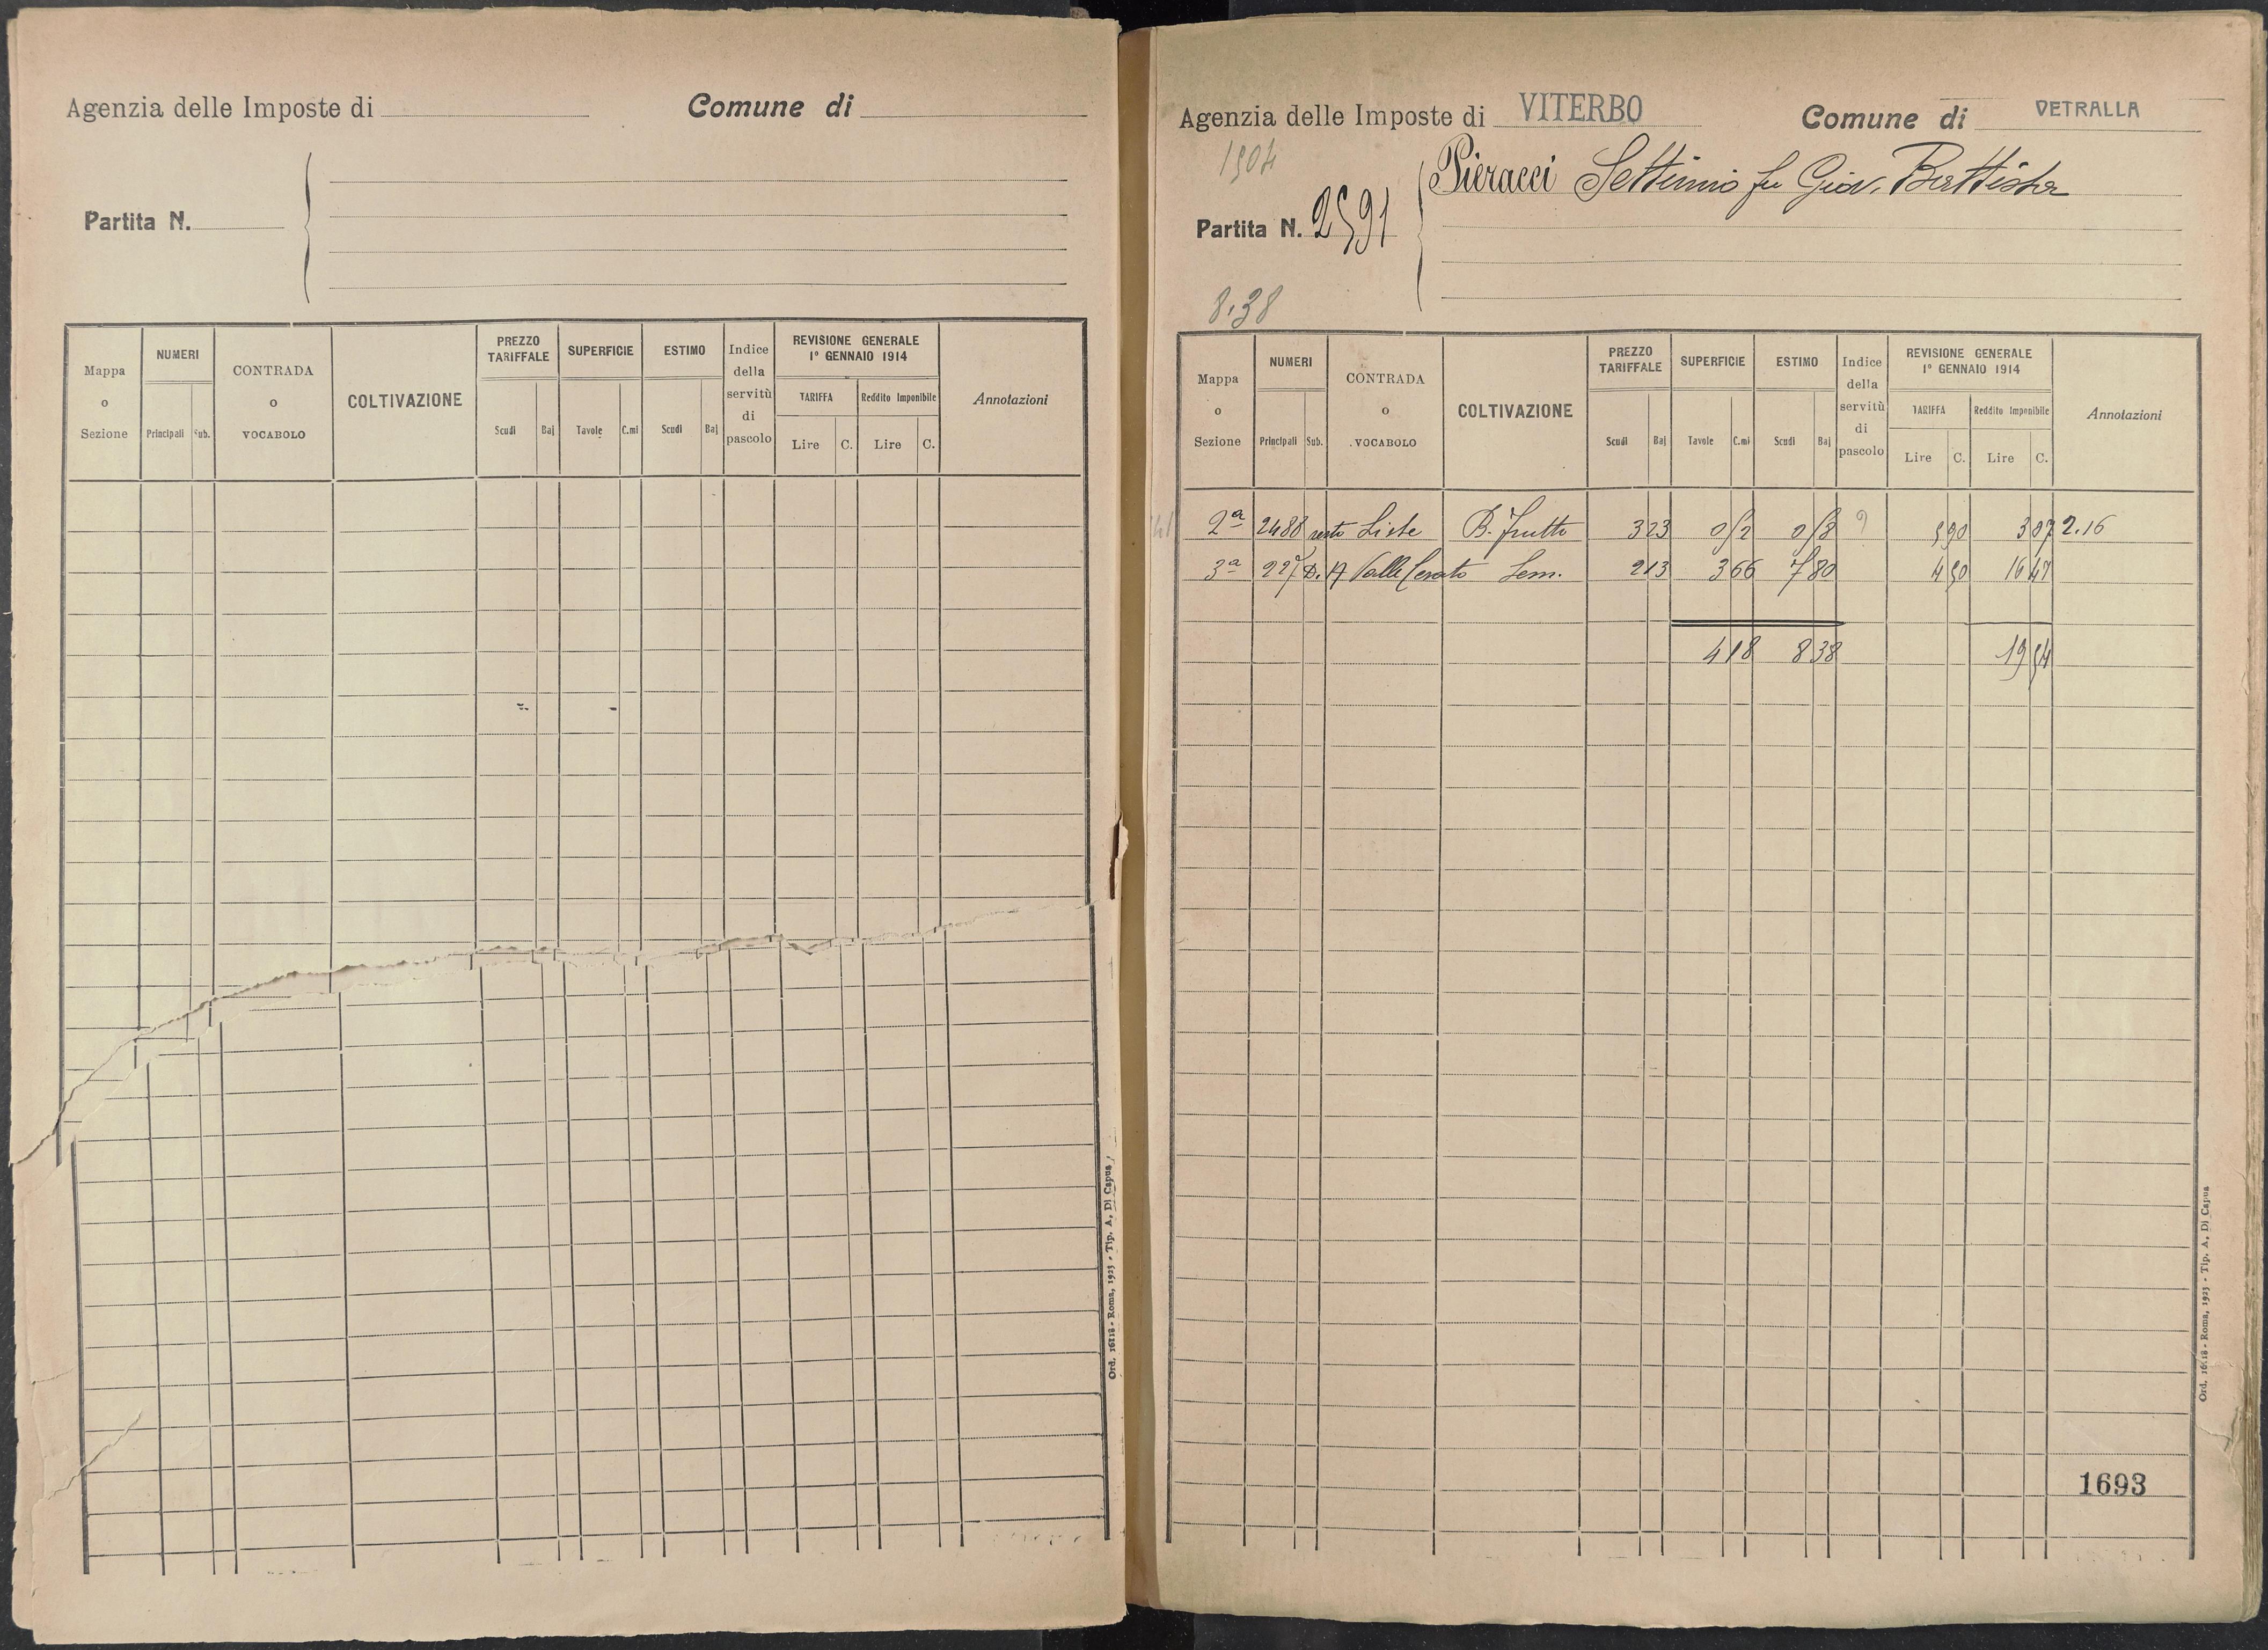 Agenzia delle Imposte di
Comune di
Partita N.
Mappa o Sezione
NUMERI
Principali Sub.
CONTRADA o VOCABOLO
COLTIVAZIONE
PREZZO TARIFFALE
Scudi Baj
SUPERFICIE
Tavole C.mi
ESTIMO
Scudi Baj
Indice della servitù di pascolo
REVISIONE GENERALE 1° GENNAIO 1914
TARIFFA
Lire C.
Reddito Imponibile
Lire C.
Annotazioni
Ord. 16118 - Roma, 1923 - Tip. A. Di Capua
Agenzia delle Imposte di VITERBO
Comune di VETRALLA
1904
Pieracci Settimio fu Giov. Battista
Partita N. 2591
8.38
Mappa o Sezione
NUMERI
Principali Sub.
CONTRADA o VOCABOLO
COLTIVAZIONE
PREZZO TARIFFALE
Scudi Baj
SUPERFICIE
Tavole C.mi
ESTIMO
Scudi Baj
Indice della servitù di pascolo
REVISIONE GENERALE 1° GENNAIO 1914
TARIFFA
Lire C.
Reddito Imponibile
Lire C.
Annotazioni
2ª 2488 resto Liste B. frutto 3 23 0 52 0 58 5 90 3 07 2.16
3ª 227 Valle Sem. 2 13 3 66 7 80 4 50 16 47
4 18 8 38 19 54
1693
Ord. 16118 - Roma, 1923 - Tip. A. Di Capua